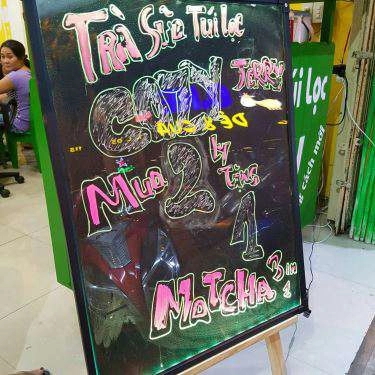 TRÀ SỮA TÚI LỌC
COZY JERRY
MUA 2 ly TẶNG 1
MATCHA 3 in 1
úi lọc
cách mới